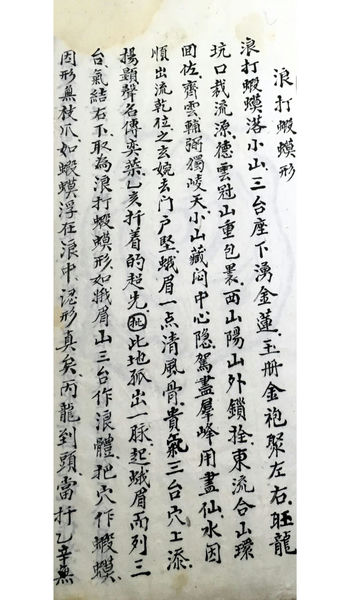 浪打蝦蟆形
浪打蝦蟆落小山三台座下湧金蓮玉册金袍聚左右胚龍
坑口栽流源德雲冠山重包裹西山陽山外鎖拴東流合山環
回佐齊雲輔弼獨峻天小山藏洞中心隐駕盡羣峰用盡仙水因
順出流乾位之玄婉去门户堅蛾眉一点清風骨貴氣三台穴上添
揚顯聲名傳奕葉乙亥扦着的超先批此地孤出一脉起蛾眉而列三
台氣結右下取為浪打蝦蟆形如蛾眉山三台作浪體把穴作蝦蟆
因形無枝爪如蝦蟆浮在浪中認形真矣丙龍到頭當扦乙辛無